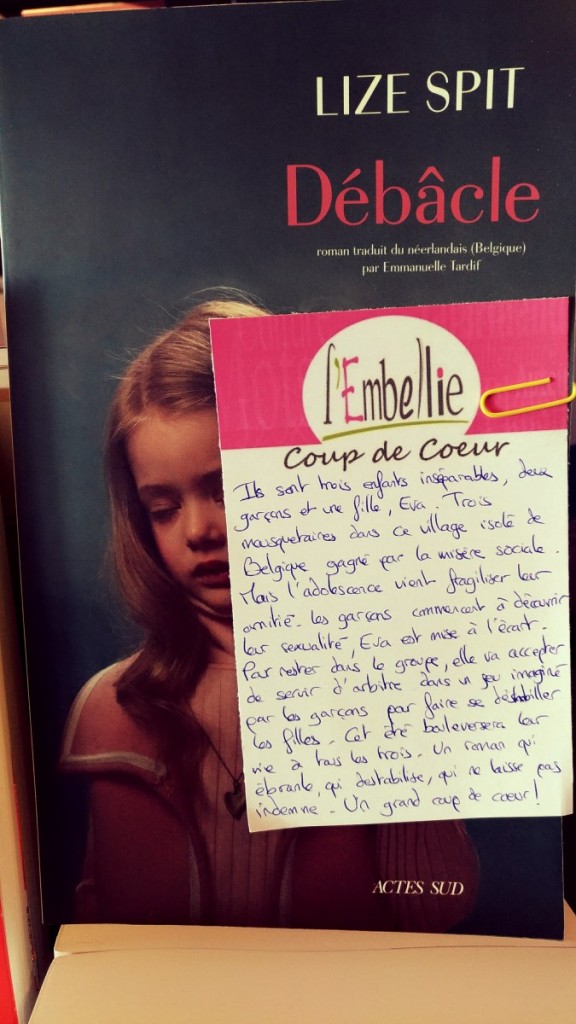 LIZE SPIT
Débâcle
roman traduit du néerlandais (Belgique)
par Emmanuelle Tardif
l'Embellie
Coup de Coeur
Ils sont trois enfants inséparables, deux
garçons et une fille, Eva. Trois
mousquetaires dans ce village isolé de
Belgique gagné par la misère sociale.
Mais l'adolescence vient fragiliser leur
amitié. Les garçons commencent à découvrir
leur sexualité, Eva est mise à l'écart.
Pour rester dans le groupe, elle va accepter
de servir d'arbitre dans un jeu imaginé
par les garçons pour faire se déshabiller
les filles. Cet été bouleversera leur
vie à tous les trois. Un roman qui
ébranle, qui destabilise, qui ne laisse pas
indemne. Un grand coup de coeur!
ACTES SUD